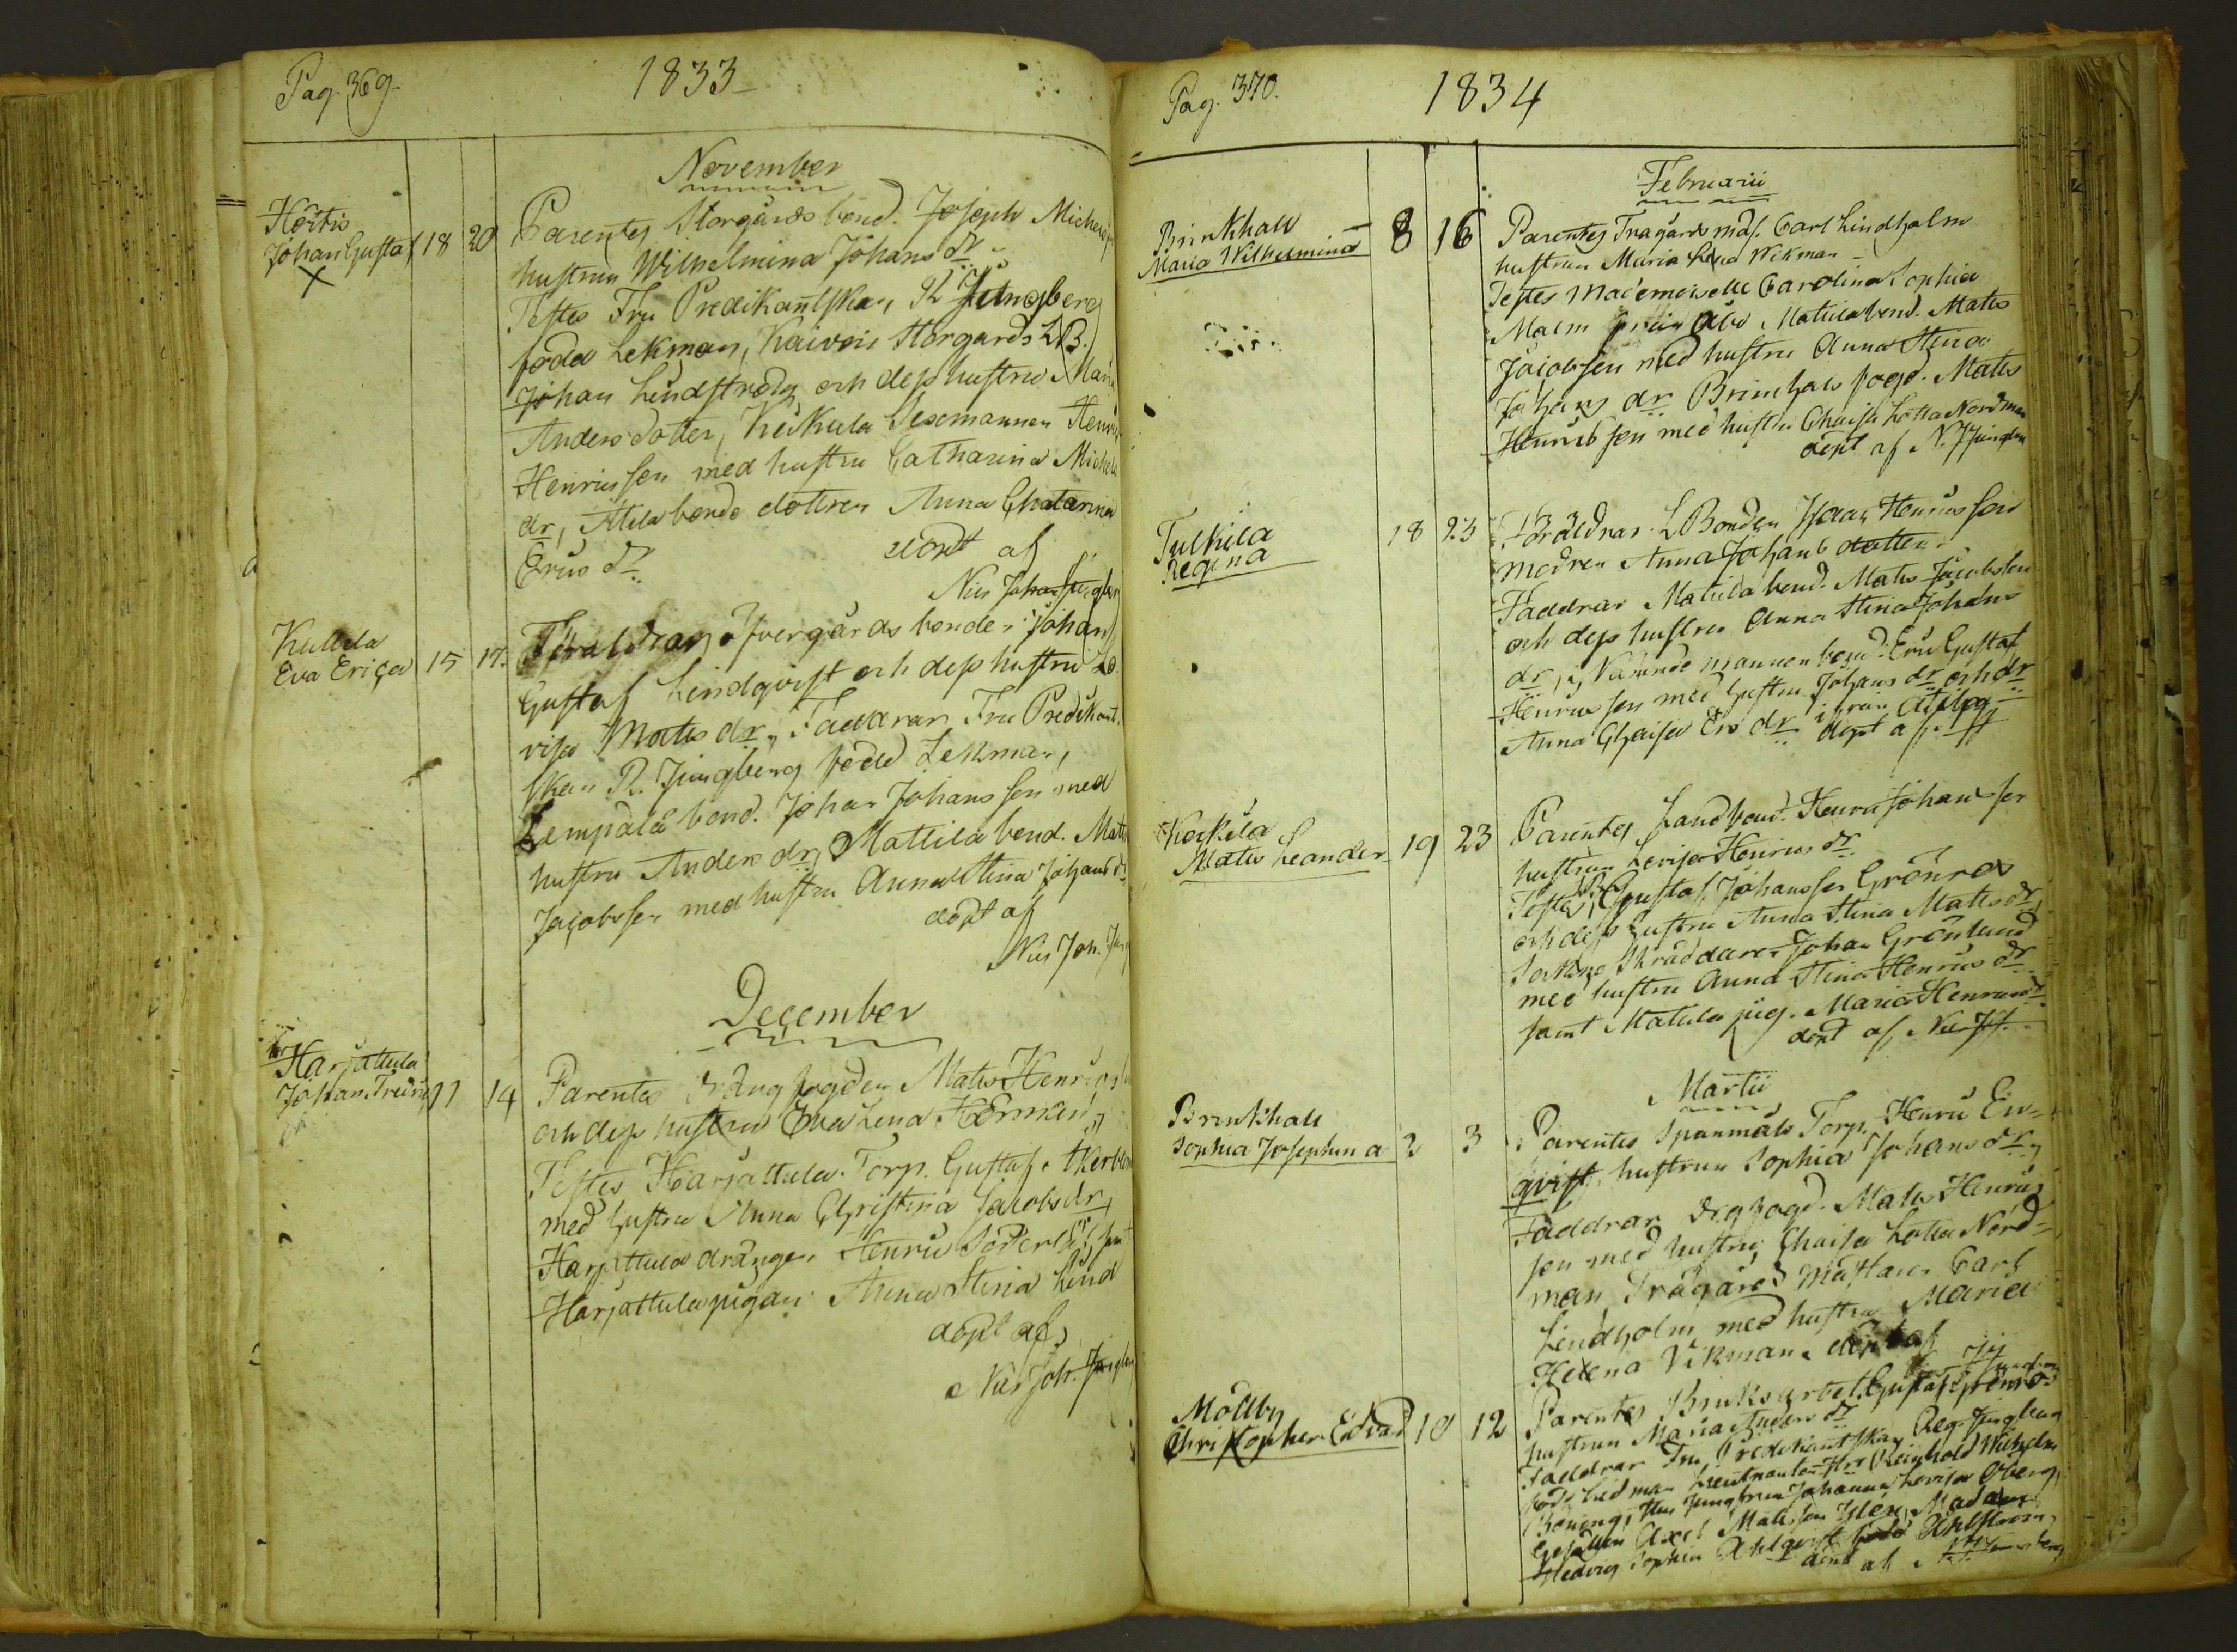 Pag. 369.
1833
November
Hörtis
Johan Gustaf 18 20
Parentes Storgårds bond. Joseph
hustrun Wilhelmina Johans dr
Testes Fru Predikantskan, R Jungberg
föda Lekman, Kaivois Storgårds LB.
Johan Lindström och dess hustru Maria
Anders dotter, Keikula Sexmannen
Henricsson med hustru Catharina
dr, Atila bonde dottren Anna Chatarina
Erics dr döpt af
Nils Joh Jungber
Kullila
Eva Erica 15 17.
Föräldrar Öfvergårds bonden Johan
Gustaf Lindqvist och dess hustru Lo
visa Mats dr, Faddrar Fru Predikant
skan R. Jungberg född Lekman,
Lempälä bond. Johan Johansson med
hustru Anders dr, Mattila bond. Mats
Jacobsson med hustru Anna Stina Johans dr
döpt af
Nils Joh. Jun
December
Harjattula
Johan 11 14
Parentes Drängfogden Mats Henrics
och dess hustru Eva Lena Herman,
Testes Harjattula Torp. Gustaf Åkerblom
med hustru Anna Christina Jacobs dr,
Harjattula drängen Henric samt
Harjattula pigan Anna Stina Lind
döpt af,
Nils Joh. Jungber
Pag. 370.
1834
Februarii
Brinkhall
Maria Wilhelmina 8 16
Parentes Tragårdsmäs. Carl Lindholm
hustrun Maria Lena Wikman
Testes Mademoiselle Carolina Sophia
Malm från Åbo, Matila bond. Mats
Jacobsson med hustru Anna Stina
Johans dr Brinchals fogd. Mats
Henricsson med hustru Chaisa Lotta Nordman
döpt af N. J Jungber
Tulkila
Regina 18 23
Föräldrar LBonden Isaac Henricsson
modren Anna Johans dotter
Faddrar Matila bond. Mats Jacobsson
och dess hustru Anna Stina Johans
dr, Nämndemannen bond. Eric Gustaf
Henricsson med hustru Johans dr och dr
Anna Chaisa Ers dr ifrån Atila
döpt af JJ
Keikila
Mats Leander 19 23
Parentes Landbond. Henric Johansson
hustrun Lovisa Henrics dr
Testes, Gustaf Johansson Grönros
och dess hustru Anna Stina Mats dr,
Sockne Skräddaren Johan Grönlund
med hustru Anna Stina Henrics dr
samt Matila pig. Maria Henrics dr
döpt af
Martii
Brinkhall
Sophia Josephina 2 3
Parentes Spanmåls Torp. Henric En-
qvist, hustrun Sophia Johans dr,
Faddrar Drgfogd. Mats Henrics
son med hustru, Chaisa Lotta Nord-
man, Trägårds mästaren Carl
Lindholm med hustru Maria
Helena Vikman. döpt af
JJ
Möllby
Christopher Edvard 10 12
Parentes Bruksarbet. Gustaf Grönros
hustrun Maria Anders dr
Faddrar Fru Predikantskan Reg. Jungberg
född Lekman Lieutnanten Hrr Reinhold Wilhelm
Boning, Jungfrun Johanna Lovisa Öberg,
Gesällen Axel Matsson Madam
Hedvig Sophia Ahlqvist född Åhlström,
döpt af